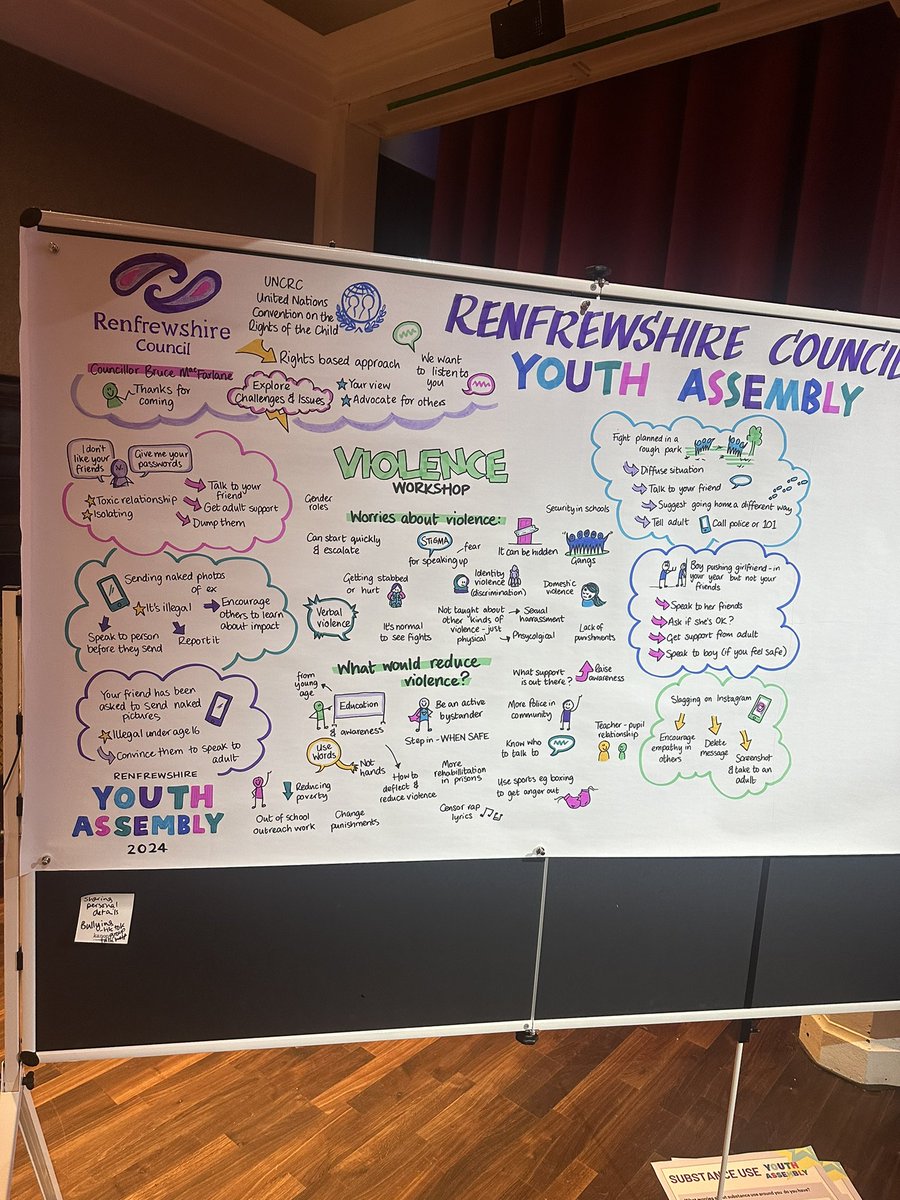 Renfrewshire
Council
UNCRC
United Nations
Convention on the
Rights of the Child
Councillor Bruce MacFarlane
Thanks for
coming
Rights based approach
Explore
Challenges & Issues
Your view
Advocate for others
We want
to listen to
you
RENFREWSHIRE COUNCIL
YOUTH ASSEMBLY
I don't
like your
friends
Give me your
passwords
Toxic relationship
Isolating
Talk to your
friend
Get adult support
Dump them
Sending naked photos
of ex
It's illegal
Encourage
others to learn
about impact
Speak to person
before they send
Report it
Your friend has been
asked to send naked
pictures
Illegal under age 16
Convince them to speak to
adult
RENFREWSHIRE
YOUTH
ASSEMBLY
2024
VIOLENCE
WORKSHOP
Gender
roles
Worries about violence:
Security in schools
Can start quickly
& escalate
STIGMA
for speaking up
fear
It can be hidden
Gangs
Getting stabbed
or hurt
Identity
violence
(discrimination)
Domestic
violence
Verbal
violence
It's normal
to see fights
Not taught about
other kinds of
violence - just
physical
Sexual
harrassment
Phsycolgical
Lack of
punishments
What would reduce
violence?
from
young
age
Education
& awareness
Be an active
bystander
Step in - WHEN SAFE
What support
is out there?
Raise
awareness
More Police in
community
Know who
to talk to
Teacher - pupil
relationship
Use
words
Not
hands
How to
deflect &
reduce violence
More
rehabilitation
in prisons
Use sports eg boxing
to get anger out
Reducing
poverty
Out of school
outreach work
Change
punishments
Censor rap
lyrics
Fight planned in a
rough park
Diffuse situation
Talk to your friend
Suggest going home a different way
Tell adult
Call police or 101
Boy pushing girlfriend - in
your year but not your
friends
Speak to her friends
Ask if she's OK?
Get support from adult
Speak to boy (if you feel safe)
Slagging on Instagram
Encourage
empathy in
others
Delete
message
Screenshot
& take to an
adult
Sharing
personal
details
Bullying
SUBSTANCE USE YOUTH
ASSEMBLY